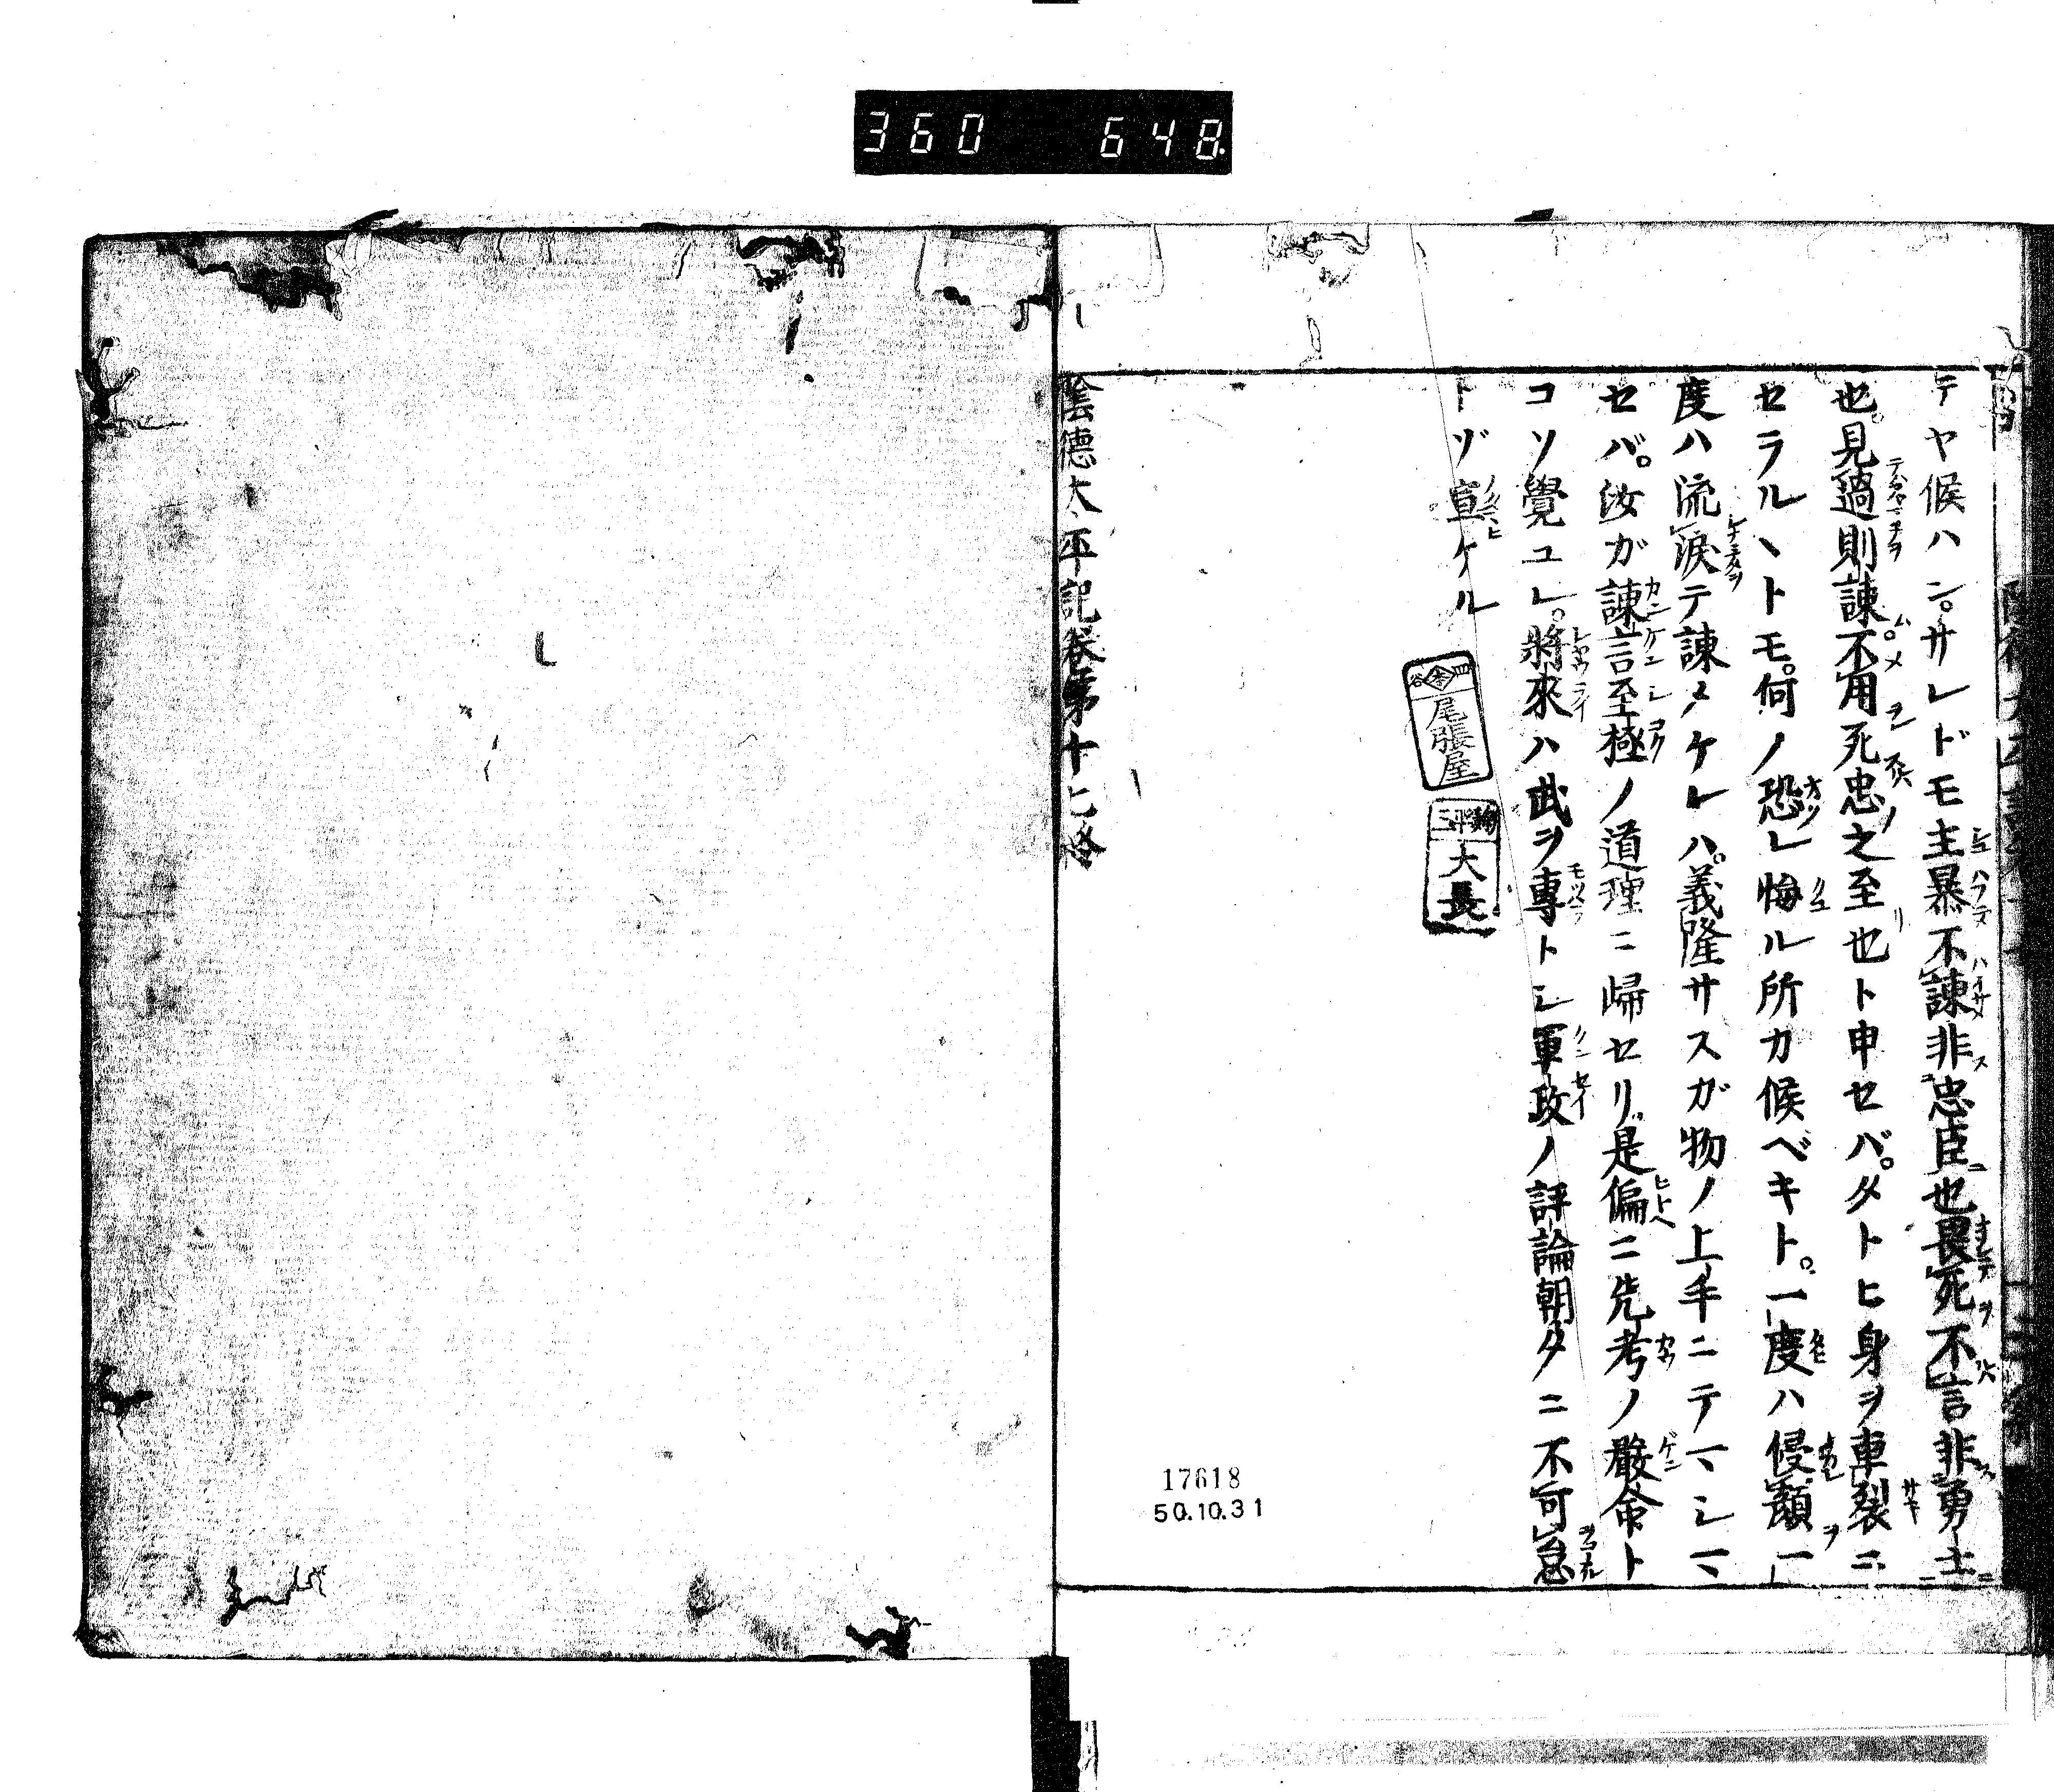 360 648
テヤ候ハン。サレドモ主暴不諫非忠臣也畏死不言非勇士
也。見過則諫不用死忠之至也ト申セバ。タトヒ身ヲ車裂ニ
セラルヽトモ。何ノ恐レ悔ル所カ候ベキト。一度ハ侵顔一
度ハ流涙テ諫メケレハ。義隆サスガ物ノ上手ニテマシマ
セバ。汝ガ諫言至極ノ道理ニ帰セリ。是偏ニ先考ノ嚴命ト
コソ覺ユレ。將來ハ武ヲ專トシ軍政ノ評論朝夕ニ不可怠
トゾ宣ケル
尾張屋
大長
陰德太平記卷第十七終
17618
50.10.31